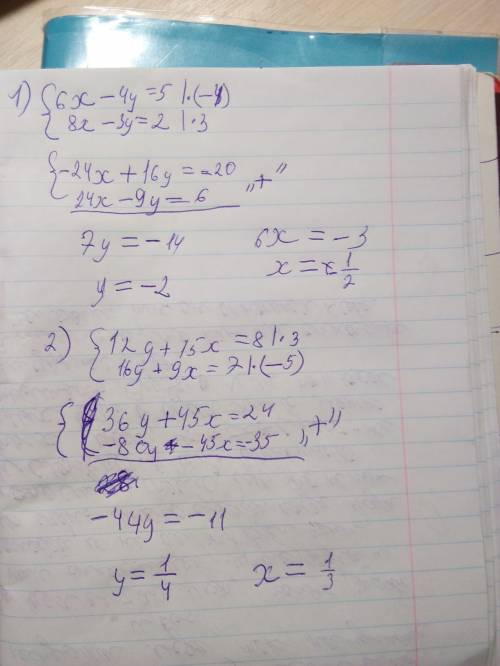 1) { 6x - 4y = 5 | · (-4)
8x - 3y = 2 | · 3
{ -24x + 16y = -20
24x - 9y = 6 „+“
7y = -14 6x = -3
y = -2 x = -1/2
2) { 12y + 15x = 8 | · 3
16y + 9x = 7 | · (-5)
{ 36y + 45x = 24
-80y - 45x = -35 „+“
-44y = -11
y = 1/4 x = 1/3